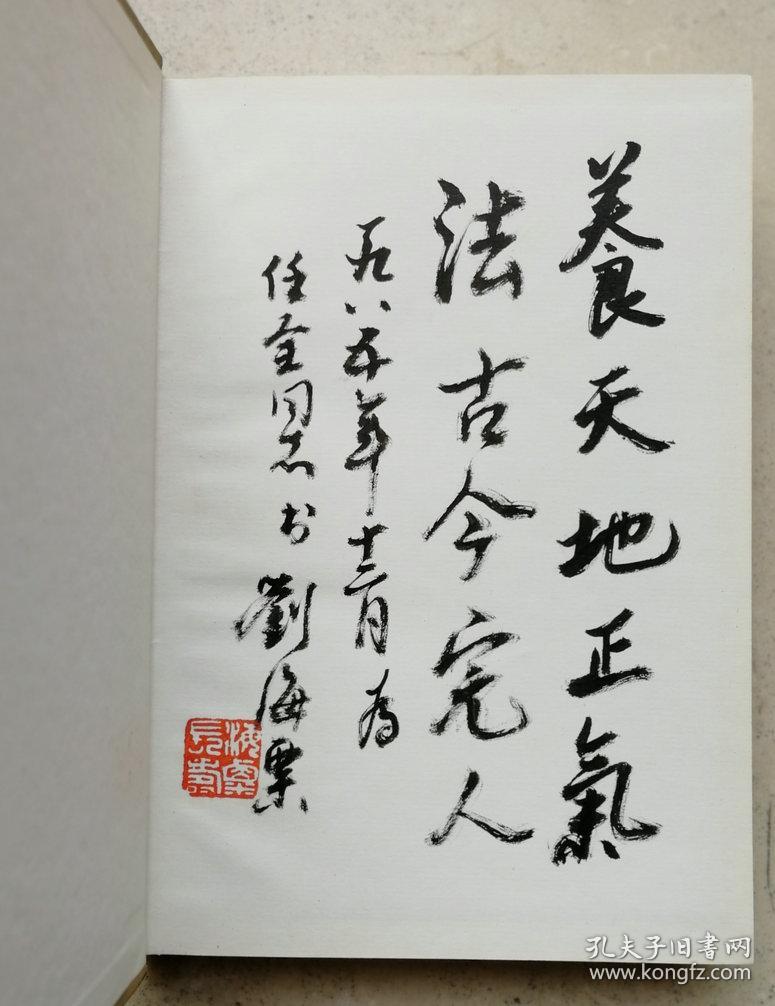 養天地正氣
法古今完人
一九八五年十二月为
任全同志书 劉海粟
海粟長壽
孔夫子旧書网
www.kongfz.com